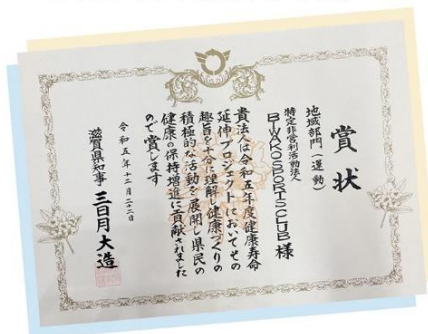 賞状
地域部門（運動）
特定非営利活動法人
BIWAKOSPORTSCLUB 様
貴法人は令和五年度健康寿命
延伸プロジェクトにおいてその
趣旨を十分に理解し健康づくりの
積極的な活動を展開し県民の
健康の保持増進に貢献されました
ので賞します
令和五年十二月二十二日
滋賀県知事 三日月大造